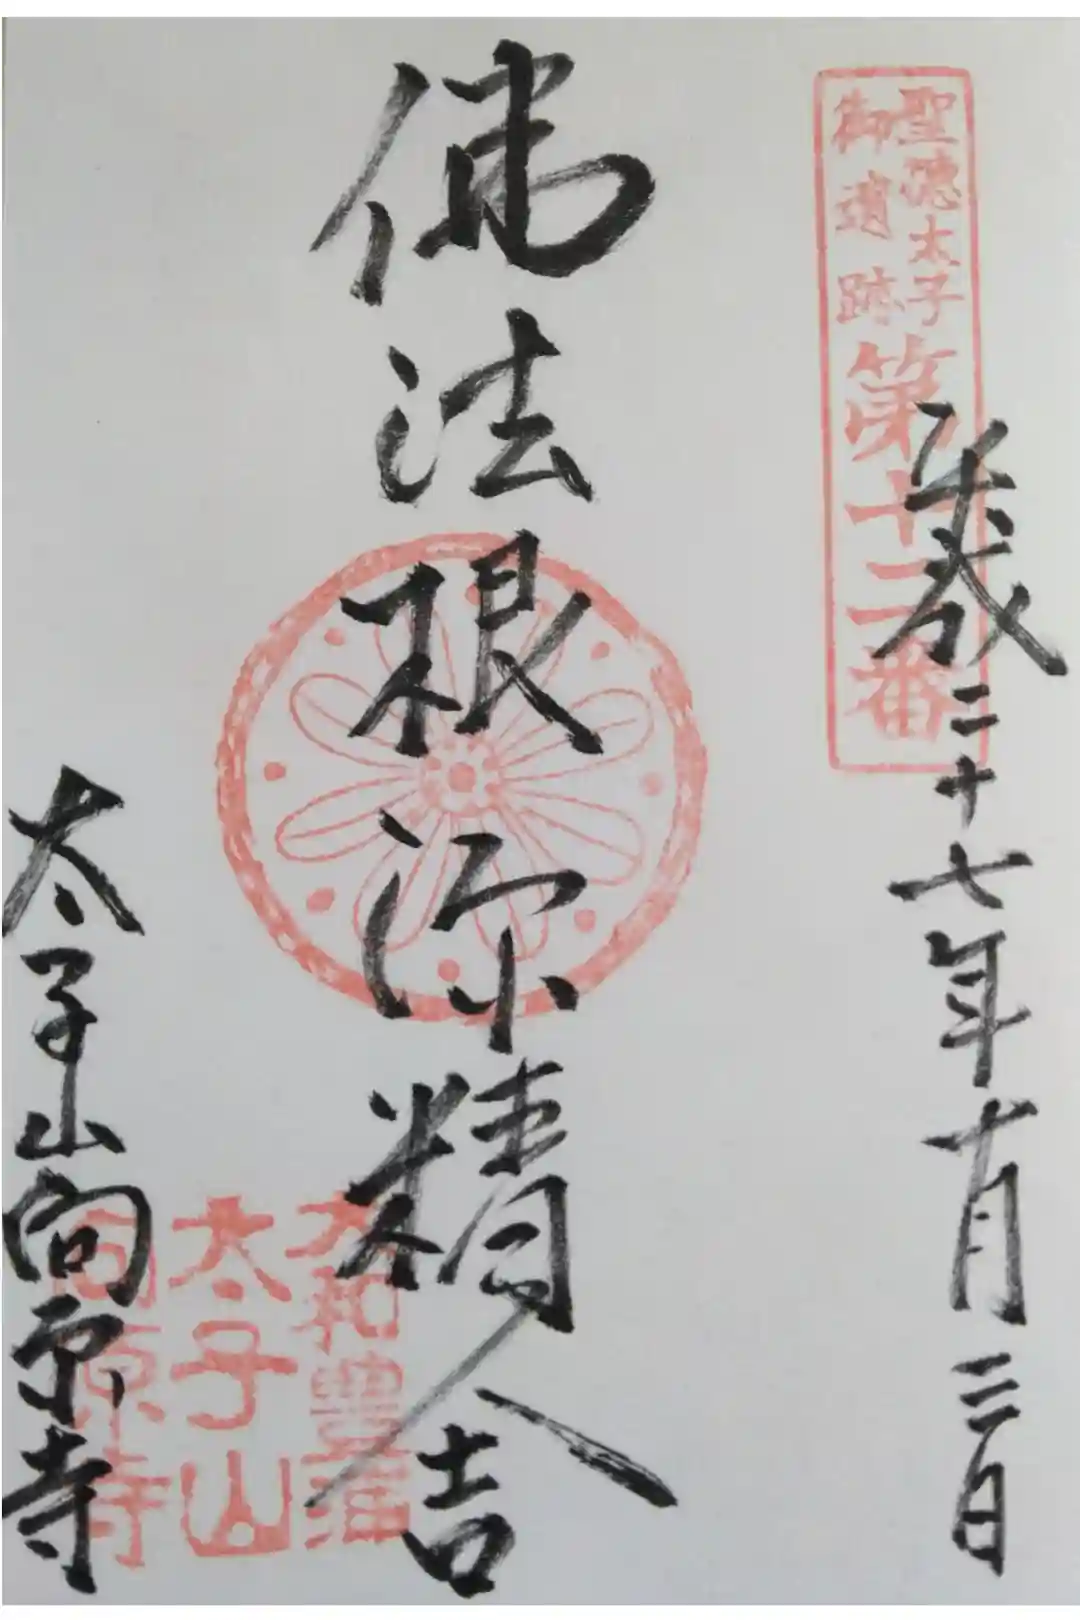 聖徳太子
御遺跡
第十二番
平成二十七年十月三日
佛法根源精舎
大和豊浦
太子山
向原寺
太子山向原寺